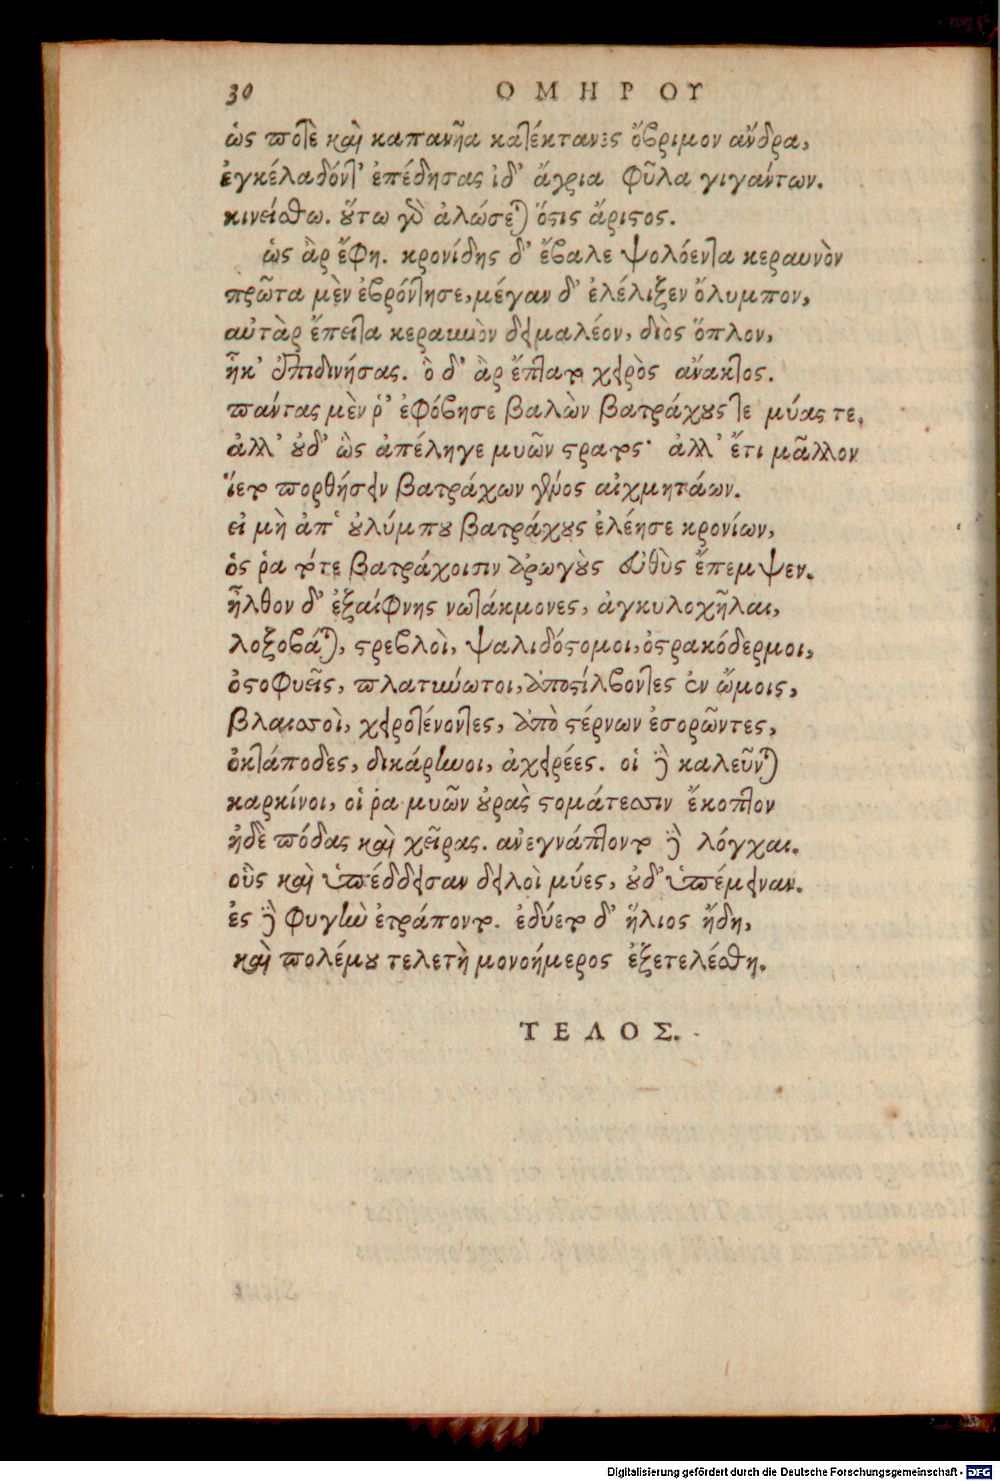 30 ΟΜΗΡΟΥ
ὡς ποτὲ καὶ καπανῆα κατέκτανες ὄβριμον ἄνδρα,
ἐγκέλαδόντ' ἐπέδησας ἰδ' ἄγρια φῦλα γιγάντων.
κινείσθω. οὕτω γὸ ἁλώσεται ὅστις ἄριστος.
ὡς ἂρ ἔφη. κρονίδης δ' ἔβαλε ψολόεντα κεραυνὸν
πρῶτα μὲν ἐβρόντησε, μέγαν δ' ἐλέλιξεν ὄλυμπον,
αὐτὰρ ἔπειτα κεραυνὸν δειμαλέον, διὸς ὅπλον,
ἧκ' ἐπιδινήσας. ὃ δ' ἂρ ἔπτατο χειρὸς ἄνακτος.
πάντας μὲν ῥ' ἐφόβησε βαλὼν βατράχους τε μύας τε.
ἀλλ' οὐδ' ὣς ἀπέληγε μυῶν στρατός· ἀλλ' ἔτι μᾶλλον
ἵετο πορθήσειν βατράχων γένος αἰχμητάων.
εἰ μὴ ἀπ' οὐλύμπου βατράχους ἐλέησε κρονίων,
ὅς ῥα τότε βατράχοισιν ἀρωγοὺς εὐθὺς ἔπεμψεν.
ἦλθον δ' ἐξαίφνης νωτάκμονες, ἀγκυλοχῆλαι,
λοξοβάται, στρεβλοὶ, ψαλιδόστομοι, ὀστρακόδερμοι,
ὀστοφυεῖς, πλατυνωτοι, ἀποστίλβοντες ἐν ὤμοις,
βλαισοὶ, χειροτένοντες, ἀπὸ στέρνων ἐσορῶντες,
ὀκτάποδες, δικάρηνοι, ἀχειρέες. οἱ δὲ καλεῦνται
καρκίνοι, οἱ ῥα μυῶν οὐρὰς στομάτεσσιν ἔκοπτον
ἠδὲ πόδας καὶ χεῖρας. ἀνεγνάπτοντο δὲ λόγχαι.
οὓς καὶ ὑπέδδεισαν δειλοὶ μύες, οὐδ' ὑπέμειναν.
ἐς δὲ φυγὴν ἐτράποντο. ἐδύετο δ' ἥλιος ἤδη,
καὶ πολέμου τελετὴ μονοήμερος ἐξετελέσθη.
ΤΕΛΟΣ.
Digitalisierung gefördert durch die Deutsche Forschungsgemeinschaft - DFG